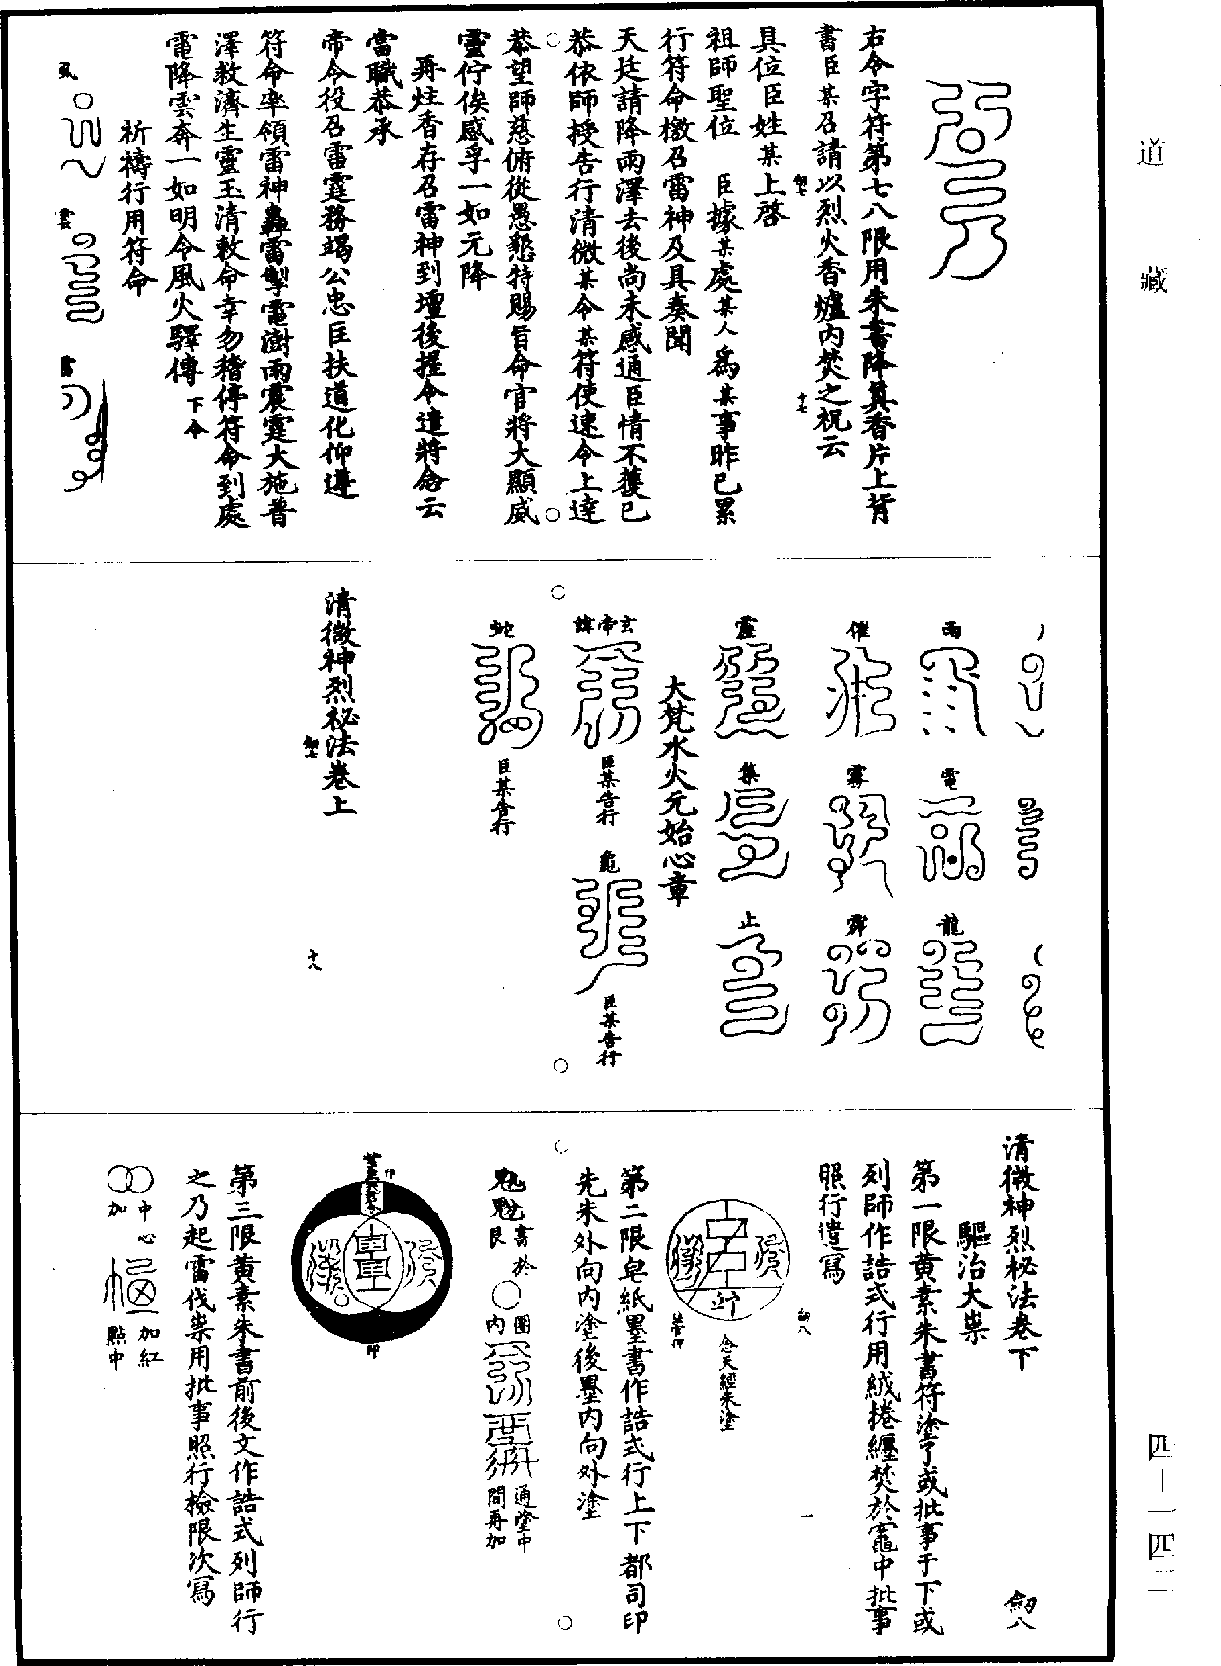 道藏
四—一四二
右令字符第七八限用朱書降真香片上背
書臣某召請以烈火香爐內焚之祝云
具位臣姓某上啓
祖師聖位　臣據某處某人為某事昨已累
行符命檄召雷神及具奏聞
天廷請降雨澤去後尚未感通臣情不獲已
恭依師授告行清微某令某符使速令上達
恭望師慈俯從愚懇特賜旨命官將大顯威
靈佇俟感孚一如元降
再炷香存召雷神到壇後握令遣將念云
當職恭承
帝令役召雷霆務竭公忠匡扶道化仰遵
符命率領雷神轟雷掣電澍雨震霆大施普
澤救濟生靈玉清敕命幸勿稽停符命到處
電降雲奔一如明令風火驛傳　下令
祈禱行用符命
風
雲
雷
雨
電
龍
催
霧
霹
靈
集
止
大梵水火元始心章
玄帝諱
臣某告行
龜
臣某告行
蛇
臣某告行
清微神烈祕法卷上
十八
清微神烈祕法卷下
劒八
驅治大祟
第一限黃素朱書符塗了或批事于下或
列師作誥式行用絨捲纏焚於竈中批事
照行遣寫
劒八
一
念天經朱塗
第二限皂紙墨書作誥式行上下都司印
先朱外向內塗後墨內向外塗
魁魁書於
艮
圈
內
通塗中
間再加
印
印
第三限黃素朱書前後文作誥式列師行
之乃起雷伐祟用批事照行檢限次寫
中心
加
加紅
點中